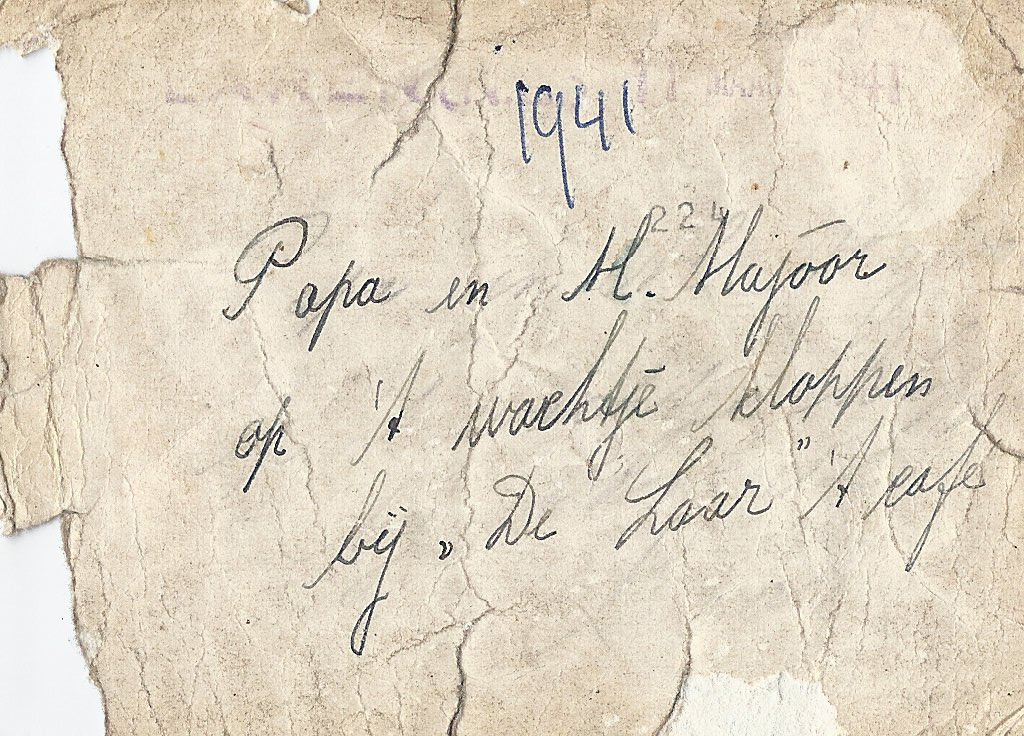 1941
224
Papa en M. Majoor
op 't wachtje kloppen
bij „De Laar" 't cafe